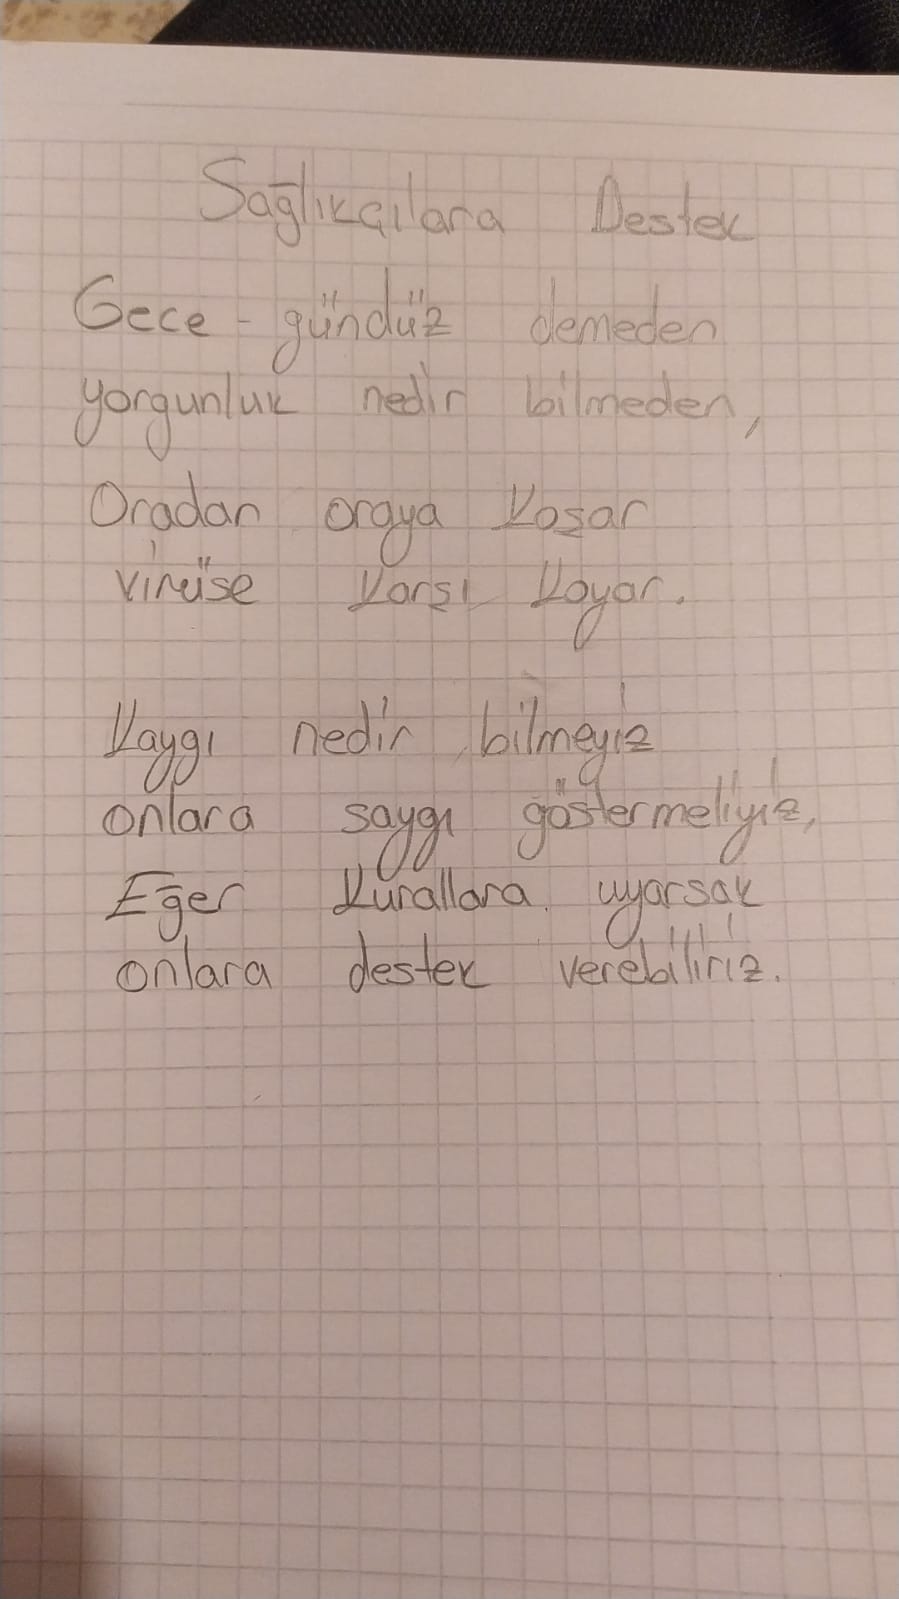 Sağlıkçılara Destek
Gece - gündüz demeden
yorgunluk nedir bilmeden,
Oradan oraya koşar
virüse karşı koyar.
Kaygı nedir bilmeyiz
onlara saygı göstermeliyiz,
Eğer kurallara uyarsak
onlara destek verebiliriz.